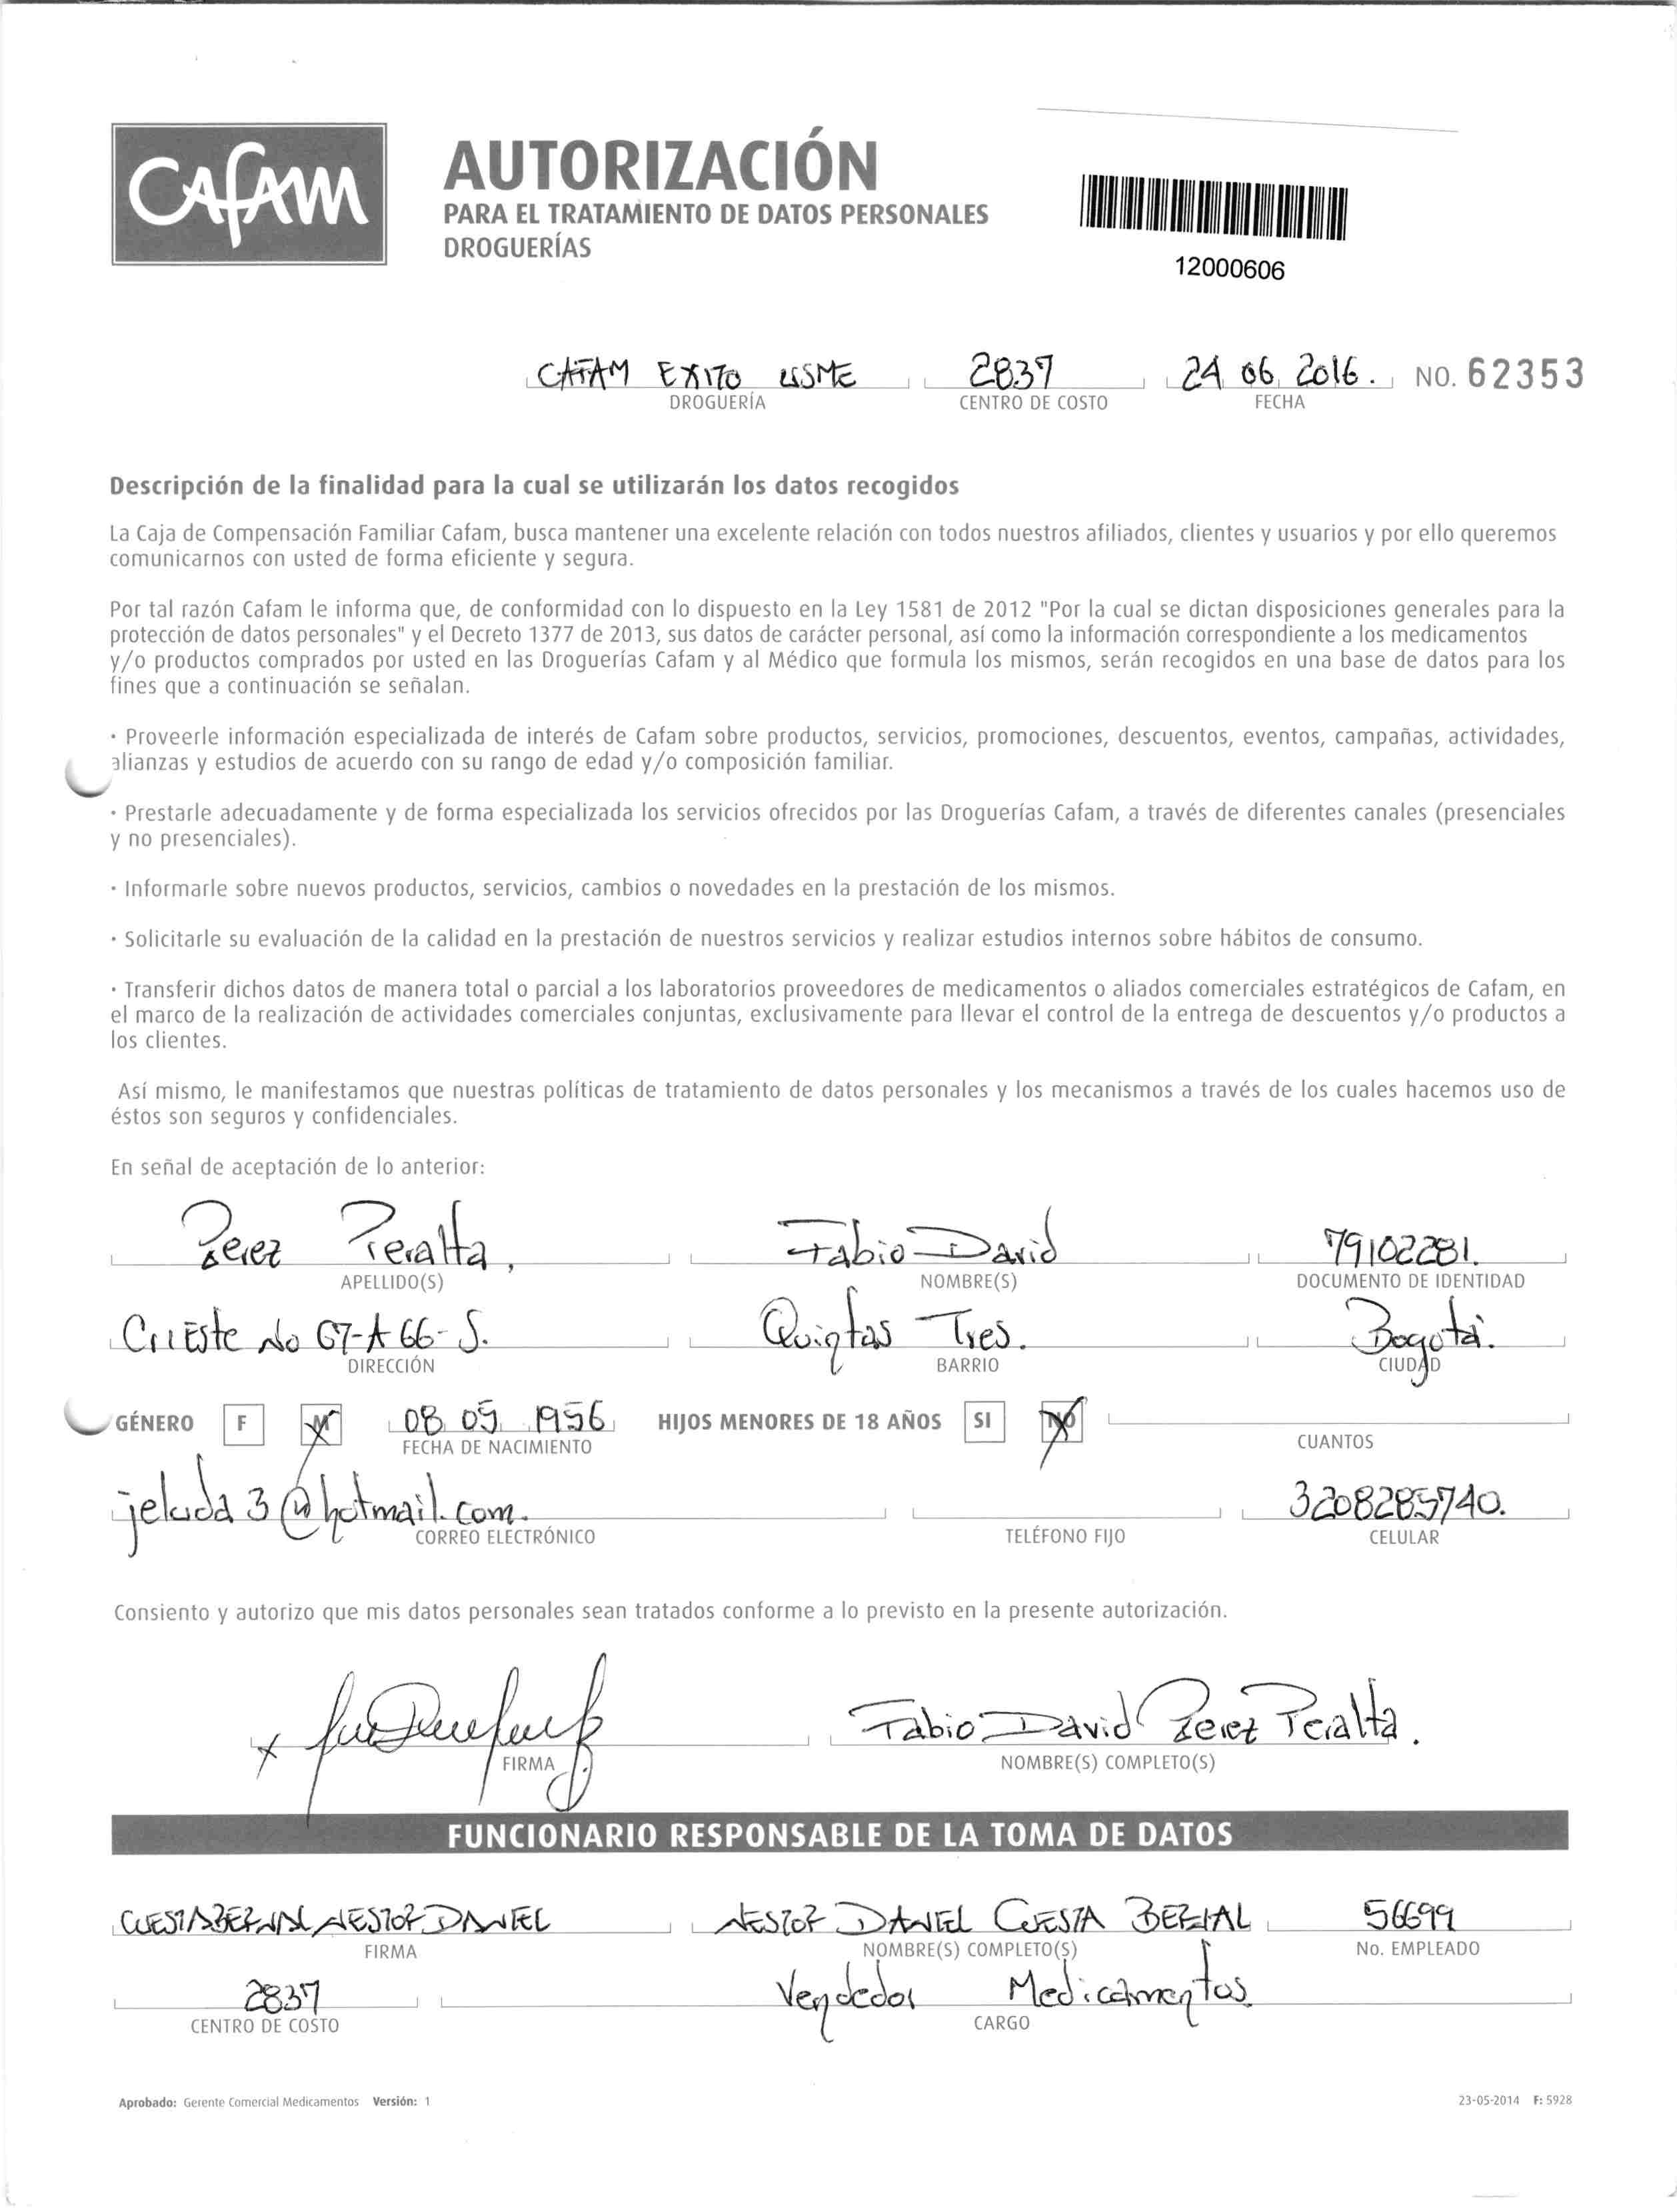 CAFAM
AUTORIZACIÓN
PARA EL TRATAMIENTO DE DATOS PERSONALES
DROGUERÍAS
12000606
CAFAM EXITO USME 2837 24 06 2016. NO. 62353
DROGUERÍA CENTRO DE COSTO FECHA
Descripción de la finalidad para la cual se utilizarán los datos recogidos
La Caja de Compensación Familiar Cafam, busca mantener una excelente relación con todos nuestros afiliados, clientes y usuarios y por ello queremos
comunicarnos con usted de forma eficiente y segura.
Por tal razón Cafam le informa que, de conformidad con lo dispuesto en la Ley 1581 de 2012 "Por la cual se dictan disposiciones generales para la
protección de datos personales" y el Decreto 1377 de 2013, sus datos de carácter personal, así como la información correspondiente a los medicamentos
y/o productos comprados por usted en las Droguerías Cafam y al Médico que formula los mismos, serán recogidos en una base de datos para los
fines que a continuación se señalan.
· Proveerle información especializada de interés de Cafam sobre productos, servicios, promociones, descuentos, eventos, campañas, actividades,
alianzas y estudios de acuerdo con su rango de edad y/o composición familiar.
· Prestarle adecuadamente y de forma especializada los servicios ofrecidos por las Droguerías Cafam, a través de diferentes canales (presenciales
y no presenciales).
· Informarle sobre nuevos productos, servicios, cambios o novedades en la prestación de los mismos.
· Solicitarle su evaluación de la calidad en la prestación de nuestros servicios y realizar estudios internos sobre hábitos de consumo.
· Transferir dichos datos de manera total o parcial a los laboratorios proveedores de medicamentos o aliados comerciales estratégicos de Cafam, en
el marco de la realización de actividades comerciales conjuntas, exclusivamente para llevar el control de la entrega de descuentos y/o productos a
los clientes.
Así mismo, le manifestamos que nuestras políticas de tratamiento de datos personales y los mecanismos a través de los cuales hacemos uso de
éstos son seguros y confidenciales.
En señal de aceptación de lo anterior:
Perez Peralta, Fabio David 79102281.
APELLIDO(S) NOMBRE(S) DOCUMENTO DE IDENTIDAD
No 67-A 66-S. Quintas Tres. Bogotá.
DIRECCIÓN BARRIO CIUDAD
GÉNERO F M 08 05 1956 HIJOS MENORES DE 18 AÑOS SI NO
FECHA DE NACIMIENTO CUANTOS
jeluda3@hotmail.com. 3208285740.
CORREO ELECTRÓNICO TELÉFONO FIJO CELULAR
Consiento y autorizo que mis datos personales sean tratados conforme a lo previsto en la presente autorización.
x Fabio David Perez Peralta.
FIRMA NOMBRE(S) COMPLETO(S)
FUNCIONARIO RESPONSABLE DE LA TOMA DE DATOS
CUESTA BERNAL NESTOR DANIEL NESTOR DANIEL CUESTA BERNAL 56699
FIRMA NOMBRE(S) COMPLETO(S) No. EMPLEADO
2837 Vendedor Medicamentos
CENTRO DE COSTO CARGO
Aprobado: Gerente Comercial Medicamentos Versión: 1 23-05-2014 F: 5928